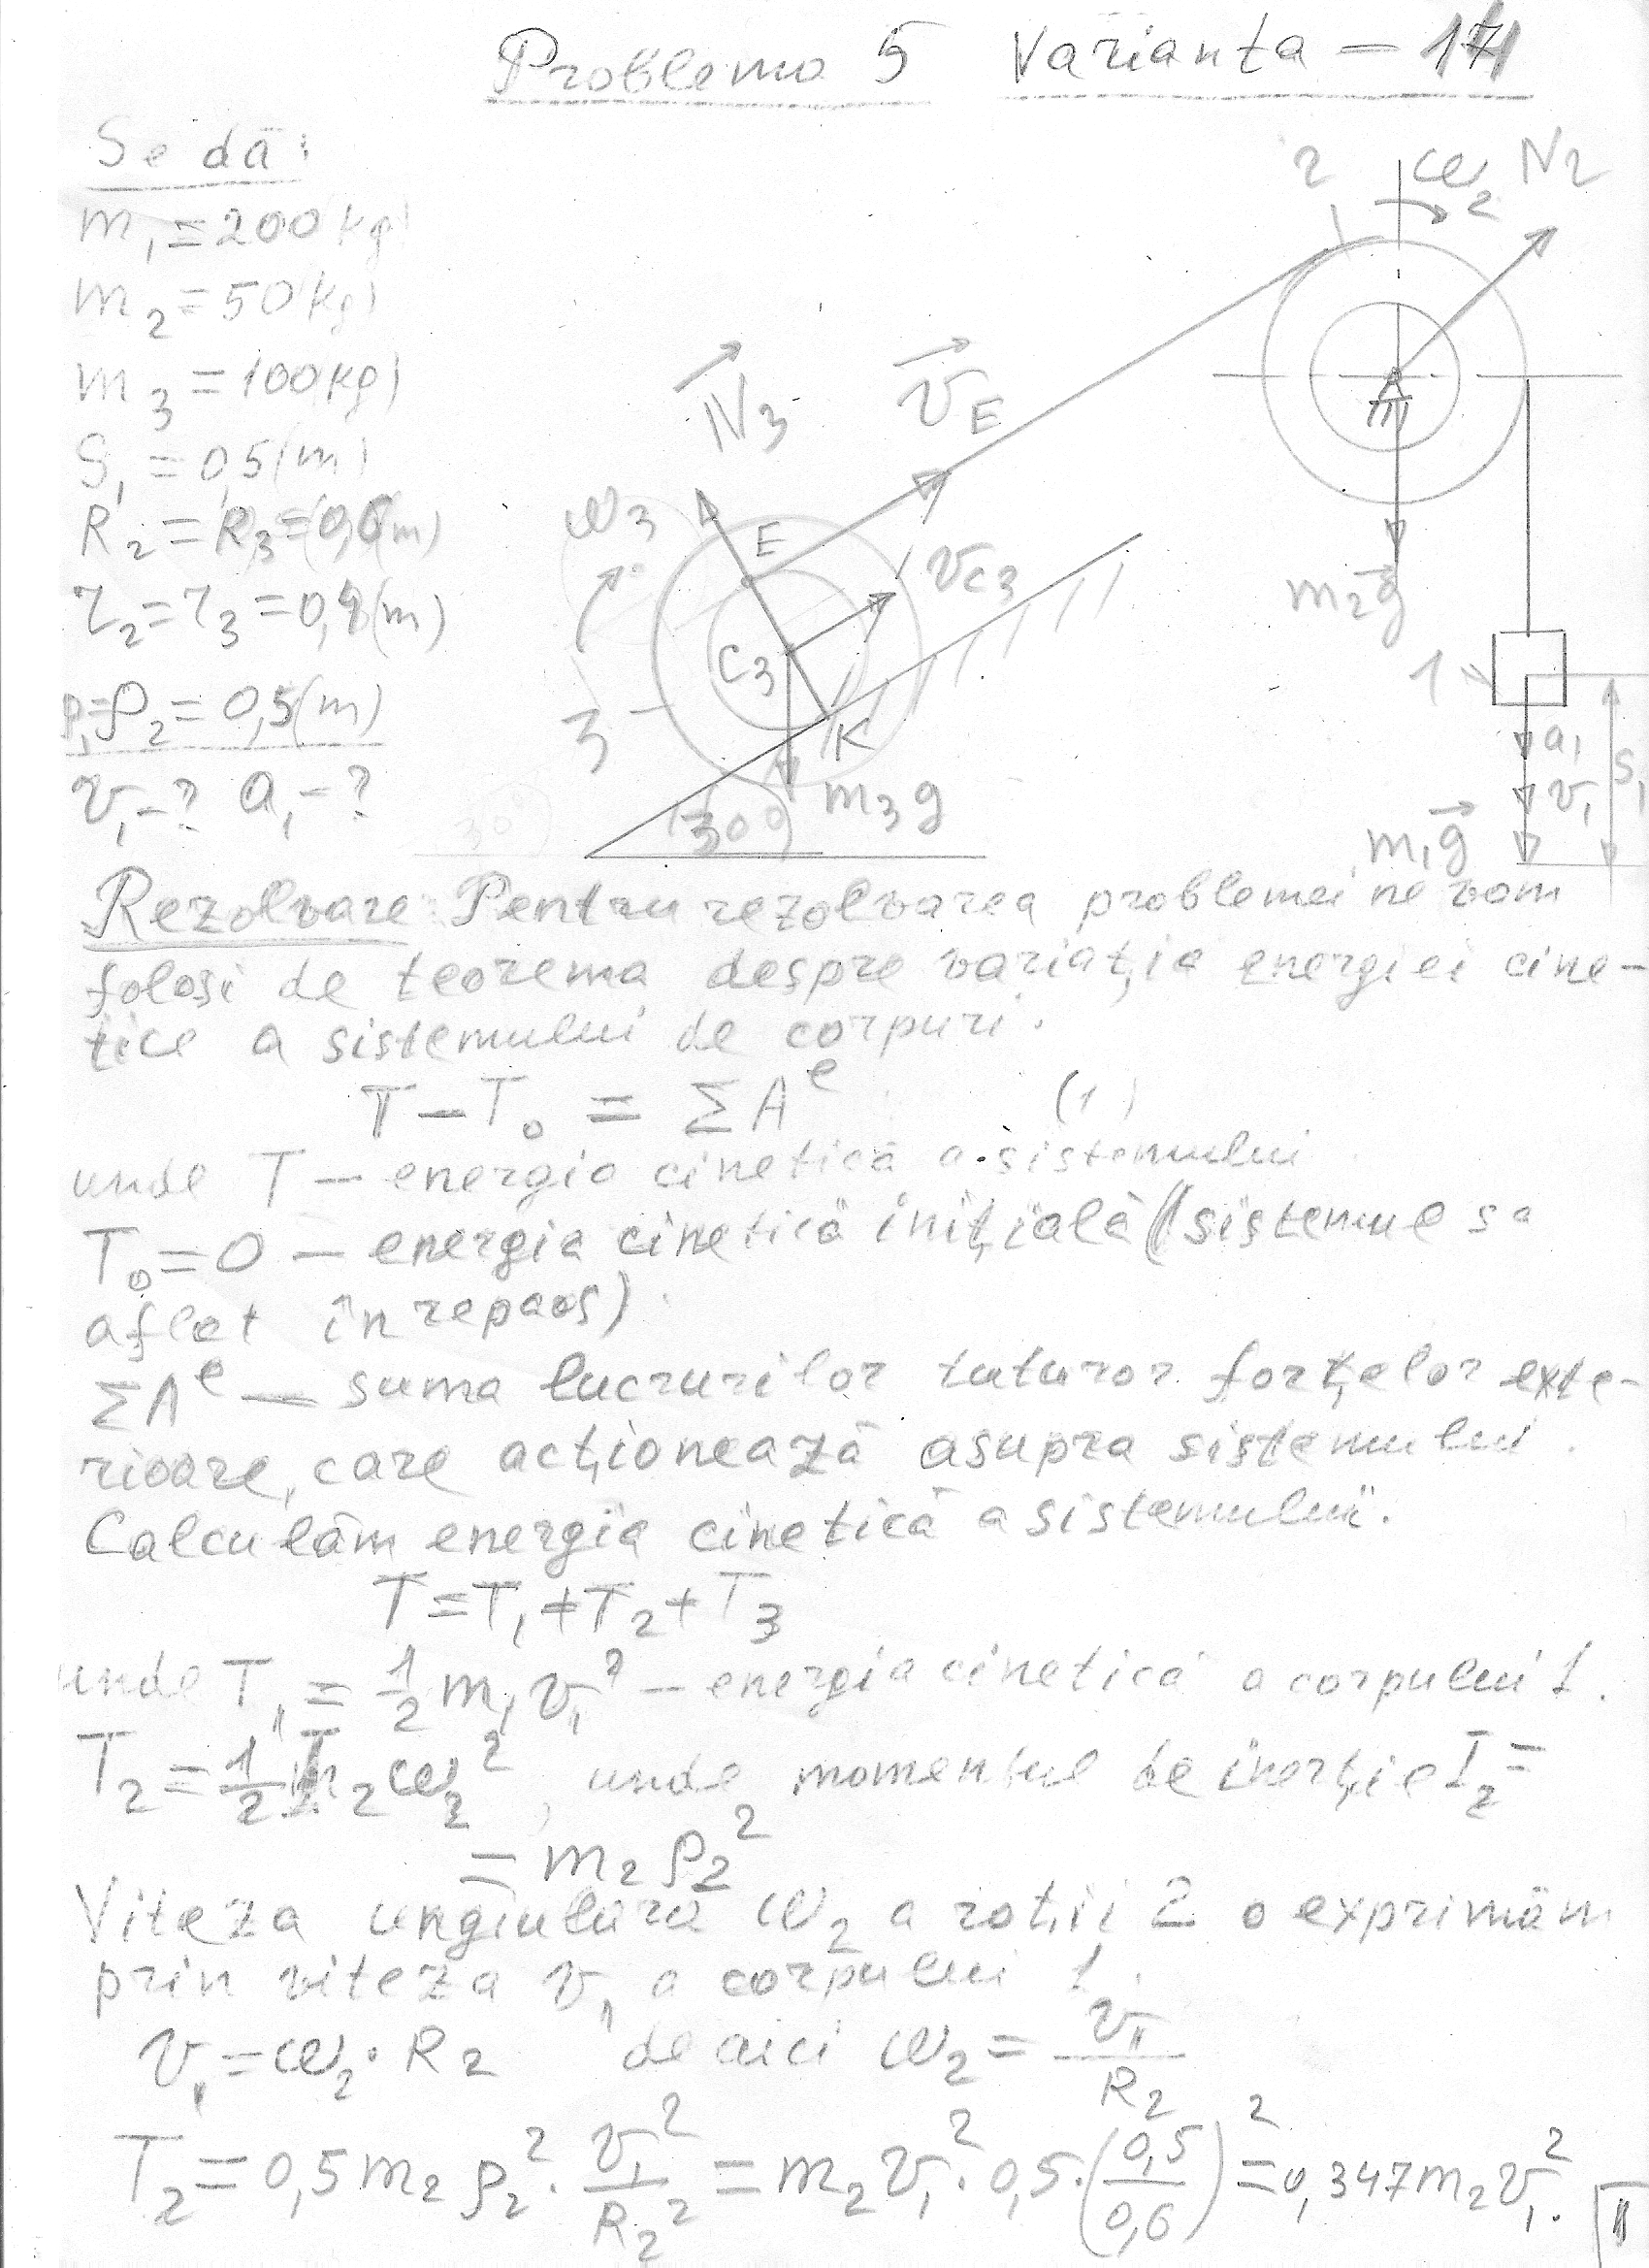 Problema 5 Varianta – 17
Se dă:
m₁ = 200(kg)
m₂ = 50(kg)
m₃ = 100(kg)
S₁ = 0,5(m)
R₂ = R₃ = 0,6(m)
r₂ = r₃ = 0,4(m)
ρ₂ = 0,5(m)
v₁ – ? a₁ – ?
2 ω₂ N₂
N₃ v_E
ω₃ E v_C3
C₃ K
3
30°
m₃g
A
m₂g
1
a₁
v₁
S₁
m₁g
Rezolvare: Pentru rezolvarea problemei ne vom
folosi de teorema despre variația energiei cine-
tice a sistemului de corpuri.
T – T₀ = ΣAᵉ (1)
unde T – energia cinetică a sistemului
T₀ = 0 – energia cinetică inițială (sistemul s-a
aflat în repaos).
ΣAᵉ – suma lucrurilor tuturor forțelor exte-
rioare, care acționează asupra sistemului.
Calculăm energia cinetică a sistemului.
T = T₁ + T₂ + T₃
unde T₁ = 1/2 m₁v₁² – energia cinetică a corpului 1.
T₂ = 1/2 I₂ω₂², unde momentul de inerție I₂ =
= m₂ρ₂²
Viteza unghiulară ω₂ a roții 2 o exprimăm
prin viteza v₁ a corpului 1.
v₁ = ω₂·R₂ de aici ω₂ = v₁/R₂
T₂ = 0,5m₂ρ₂²·v₁²/R₂² = m₂v₁²·0,5·(0,5/0,6)² = 0,347m₂v₁².